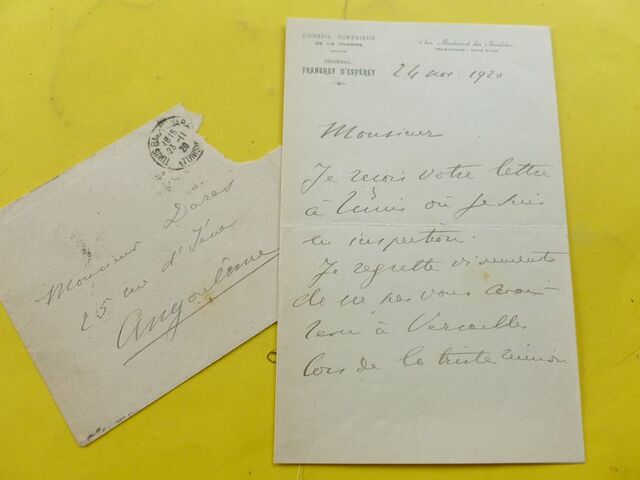 CONSEIL SUPÉRIEUR
DE LA GUERRE
GÉNÉRAL
FRANCHET D'ESPÉREY
Boulevard des Invalides
TÉLÉPHONE
24 nov. 1920
Monsieur
Je reçois votre lettre
à Tunis où je suis
en inspection.
Je regrette vivement
de ne pas vous avoir
revu à Versailles
lors de la triste réunion
TUNIS
18 15
23-11
20
TUNISIE
Monsieur Dares
25 rue d'Iéna
Angoulême